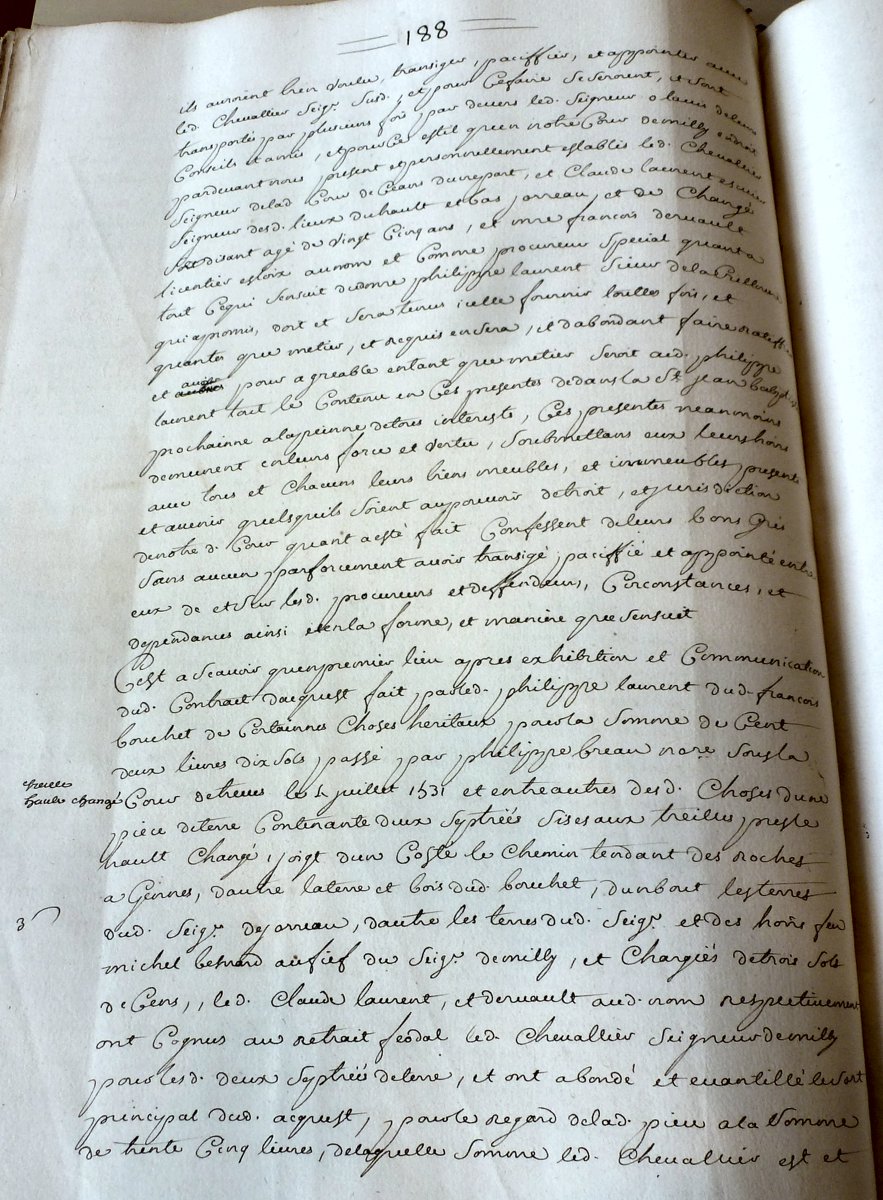 188
ils auroient bien voulu, transiger, paciffier, et appointer avec
led. Chevallier Seigr. Susd. et pour Cefaire Seseroient, et Sont
transportés par plusieurs fois par devers led. Seigneur o lavis deleurs
Conseils et amis, et pource estil quen notre Cour demilly endroit
pardevant nous present et personnellement establis led. Chevallier
Seigneur delad. Cour de Ceans dunepart, et Claude laurent escuier
Seigneur desd. lieux duhault et bas jarreau, et de Changé
Soit disant agé de Vingt Cinq ans, et mre francois deruault
licentier esloix au nom et Comme procureur Special quanta
tout Cequi Sensuit dudonne philippe laurent Sieur dela
quiapromis, doit et Sera tenus icelle fournir touttes fois, et
quantes que metier, et requis ensera, et dabondant faire
et avoir pour agreable entant que metier Seroit aud. philippe
laurent tout le Contenu en Ces presentes dedansla St. jean baptiste
prochainne alapeinne detous interests, Ces presentes neanmoins
demeurent enleurs force et Vertu, Soubmettans eux leurshoirs
avec tous et Chacuns leurs biens meubles, et immeubles presents
et avenir quelsquils Soient aupouvoir detroit, et jurisdiction
denotred. Cour quant aesté fait Confessent deleurs bons Grés
Sans aucun parforcement avoir transigé, paciffié et appointé entre
eux de et Sur lesd. procureurs et deffendeurs, Circonstances, et
dependances ainsi et enla forme, et maniere que Sensuit
Cest aScavoir quenpremier lieu apres exhibition et Communication
dud. Contrait dacquest fait parled. philippe laurent dud. francois
bouchet de Certainnes Choses heritaux pourla Somme de Cent
deux livres dix Sols passé par philippe breau nore Soula
treilles
hault changé
Cour detreves le 4 juillet 1531 et entreautres desd. Choses dune
piece deterre Contenante deux Septrées Sises aux treilles presle
hault Changé, joigt dun Costé le Chemin tendant des roches
a Gennes, dautre laterre et bois dud. bouchet, dunbout lesterres
3
dud. Seigr. dejarreau, dautre les terres dud. Seigr. et des hoirs feu
michel besnard aufief du Seigr. demilly, et Chargiés detrois Sols
de Cens,, led. Claude laurent, et deruault aud. nom respectivement
ont Cognus au retrait feodal led. Chevallier Seigneur demilly
pour lesd. deux Septrées deterre, et ont abondé et evantillé leSort
principal dud. acquest, pourle regard delad. piece a la Somme
de trente Cinq livres, delaquelle Somme led. Chevallier est et